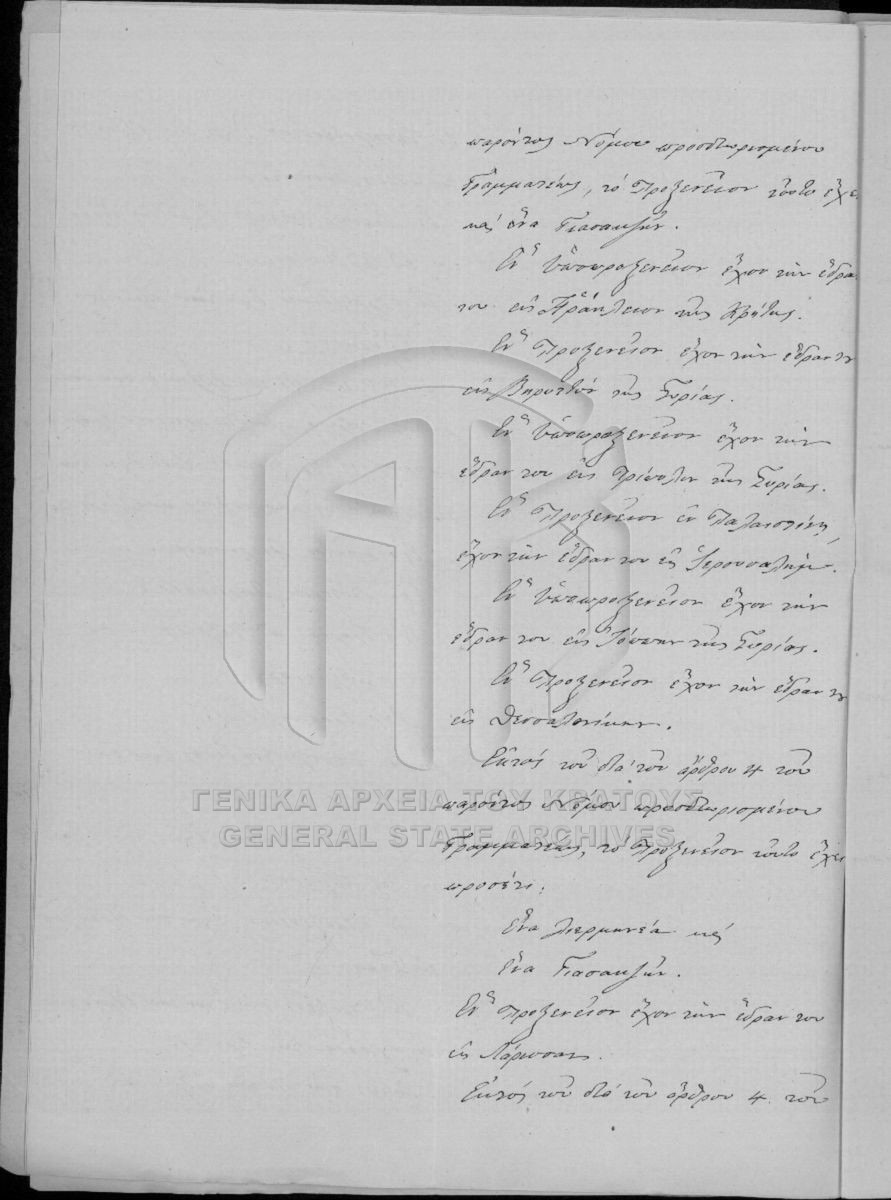 παρόντος Νόμου προσδιωρισμένου
Γραμματέως, τὸ Προξενεῖον τοῦτο ἔχει
καὶ ἕνα Γιασακζῆν.
Ἓν Ὑποπροξενεῖον ἔχον τὴν ἕδραν
του εἰς Ἡράκλειον τῆς Κρήτης.
Ἓν Προξενεῖον ἔχον τὴν ἕδραν του
εἰς Βηρυτὸν τῆς Συρίας.
Ἓν Ὑποπροξενεῖον ἔχον τὴν
ἕδραν του εἰς Τρίπολιν τῆς Συρίας.
Ἓν Προξενεῖον ἐν Παλαιστίνῃ,
ἔχον τὴν ἕδραν του εἰς Ἱερουσαλήμ.
Ἓν Ὑποπροξενεῖον ἔχον τὴν
ἕδραν του εἰς Ἰόππην τῆς Συρίας.
Ἓν Προξενεῖον ἔχον τὴν ἕδραν του
εἰς Θεσσαλονίκην.
Ἐκτὸς τοῦ διὰ τοῦ ἄρθρου 4 τοῦ
παρόντος Νόμου προσδιωρισμένου
Γραμματέως, τὸ Προξενεῖον τοῦτο ἔχει
προσέτι:
Ἕνα Διερμηνέα καὶ
ἕνα Γιασακζῆν.
Ἓν Προξενεῖον ἔχον τὴν ἕδραν του
εἰς Λάρισσαν.
Ἐκτὸς τοῦ διὰ τοῦ ἄρθρου 4 τοῦ
ΓΕΝΙΚΑ ΑΡΧΕΙΑ ΤΟΥ ΚΡΑΤΟΥΣ
GENERAL STATE ARCHIVES